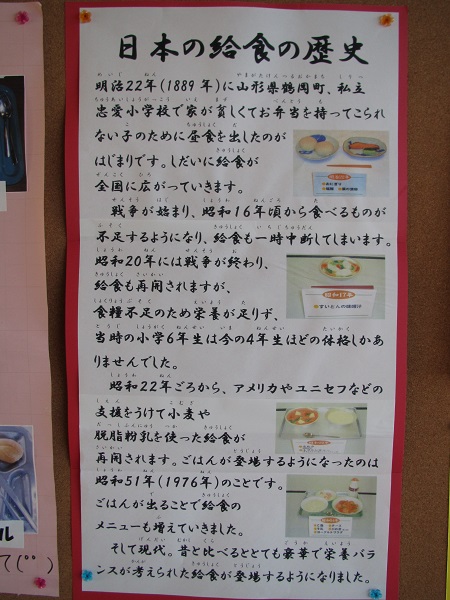 日本の給食の歴史
明治22年(1889年)に山形県鶴岡町、私立
忠愛小学校で家が貧しくてお弁当を持ってこられ
ない子のために昼食を出したのが
はじまりです。しだいに給食が
全国に広がっていきます。
戦争が始まり、昭和16年頃から食べるものが
不足するようになり、給食も一時中断してしまいます。
昭和20年には戦争が終わり、
給食も再開されますが、
食糧不足のため栄養が足りず、
当時の小学6年生は今の4年生ほどの体格しかあ
りませんでした。
昭和22年ごろから、アメリカやユニセフなどの
支援をうけて小麦や
脱脂粉乳を使った給食が
再開されます。ごはんが登場するようになったのは
昭和51年(1976年)のことです。
ごはんが出ることで給食の
メニューも増えていきました。
そして現代。昔と比べるととても豪華で栄養バラ
ンスが考えられた給食が登場するようになりました。